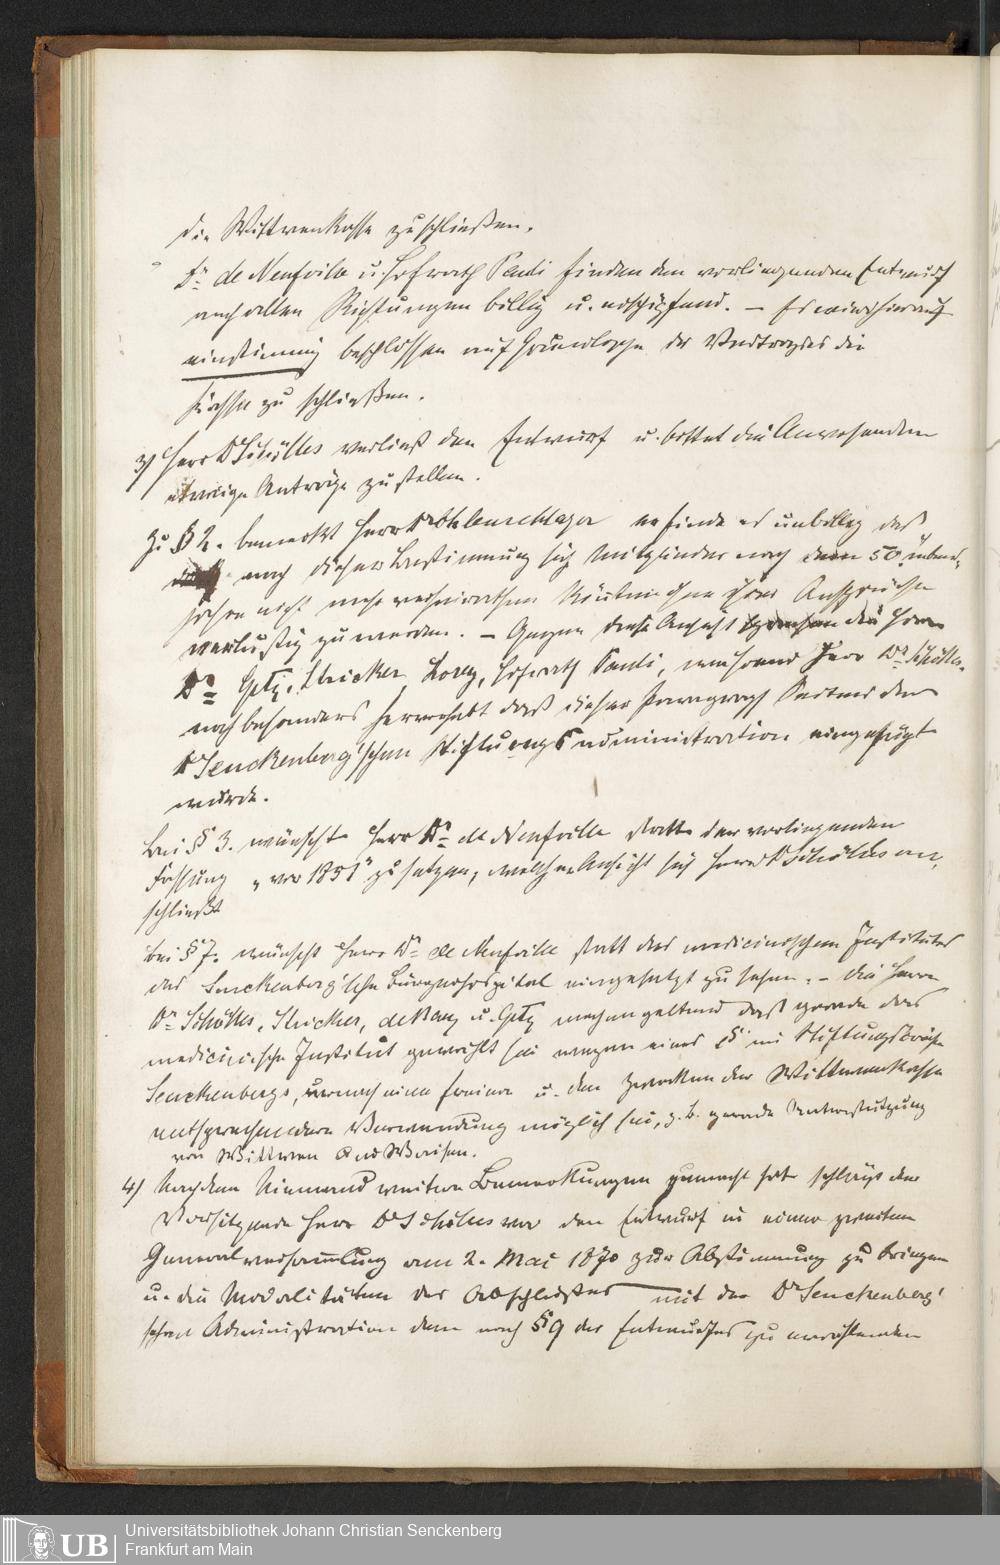 die Wittwenkasse zu schließen.
Dr de Neufville u. Hofrath Pauli finden den vorliegenden Entwurf
nach allen Richtungen billig u. erschöpfend. – Es wird hierauf
einstimmig beschlossen auf Grundlage des Vertrages die
Kasse zu schließen.
3) Herr Dr Schölles verließt den Entwurf u. bittet die Anwesenden
etwaige Anträge zu stellen.
Zu § 2. bemerkt Herr Dr Ohlenschlager er finde es unbillig daß
nach dieser Bestimmung sich Mitglieder nach dem 50. Lebens-
jahre nicht mehr verheirathen könnten ohne ihrer Ansprüche
verlustig zu werden. – Gegen diese Ansicht sprechen die Herren
Dr Getz, Stricker, Lorey, Hofrath Pauli, während Herr Dr Schölles
noch besonders hervorhebt daß dieser Paragraph Seitens der
Dr Senckenberg'schen Stiftungsadministration eingefügt
wurde.
Bei § 3. wünscht Herr Dr de Neufville statt der vorliegenden
Fassung „vor 1851" zu setzen, welcher Ansicht sich Herr Dr Schölles an-
schließt
Bei § 7. wünscht Herr Dr de Neufville statt des medicinischen Institutes
das Senckenberg'sche Bürgerhospital eingesetzt zu sehen. – Die Herren
Dr Schölles, Stricker, de Bary u. Getz machen geltend daß gerade das
medicinische Institut gewählt sei wegen eines § im Stiftungsbriefe
Senckenbergs, wonach eine freiere u. den Zwecken der Wittwenkasse
entsprechendere Verwendung möglich sei, z. B. gerade Unterstützung
von Wittwen und Waisen.
4) Nachdem Niemand weitere Bemerkungen gemacht hat schlägt der
Vorsitzende Herr Dr Schölles vor den Entwurf in einer zweiten
Generalversammlung am 2. Mai 1870 zur Abstimmung zu bringen
u. die Modalitäten des Abschlusses mit der Dr Senckenberg'
schen Administration dem nach § 9 des Entwurfes zu erwählenden
Universitätsbibliothek Johann Christian Senckenberg
Frankfurt am Main
UB